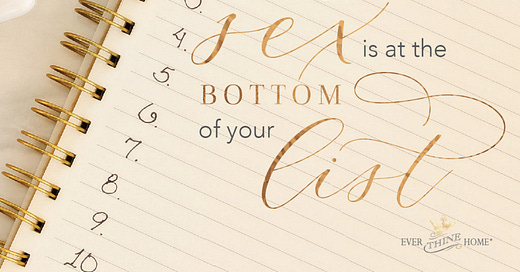 3.
4.
5.
6.
7.
8.
9.
10
sex is at the
BOTTOM
of your
list
EVER THINE HOME®